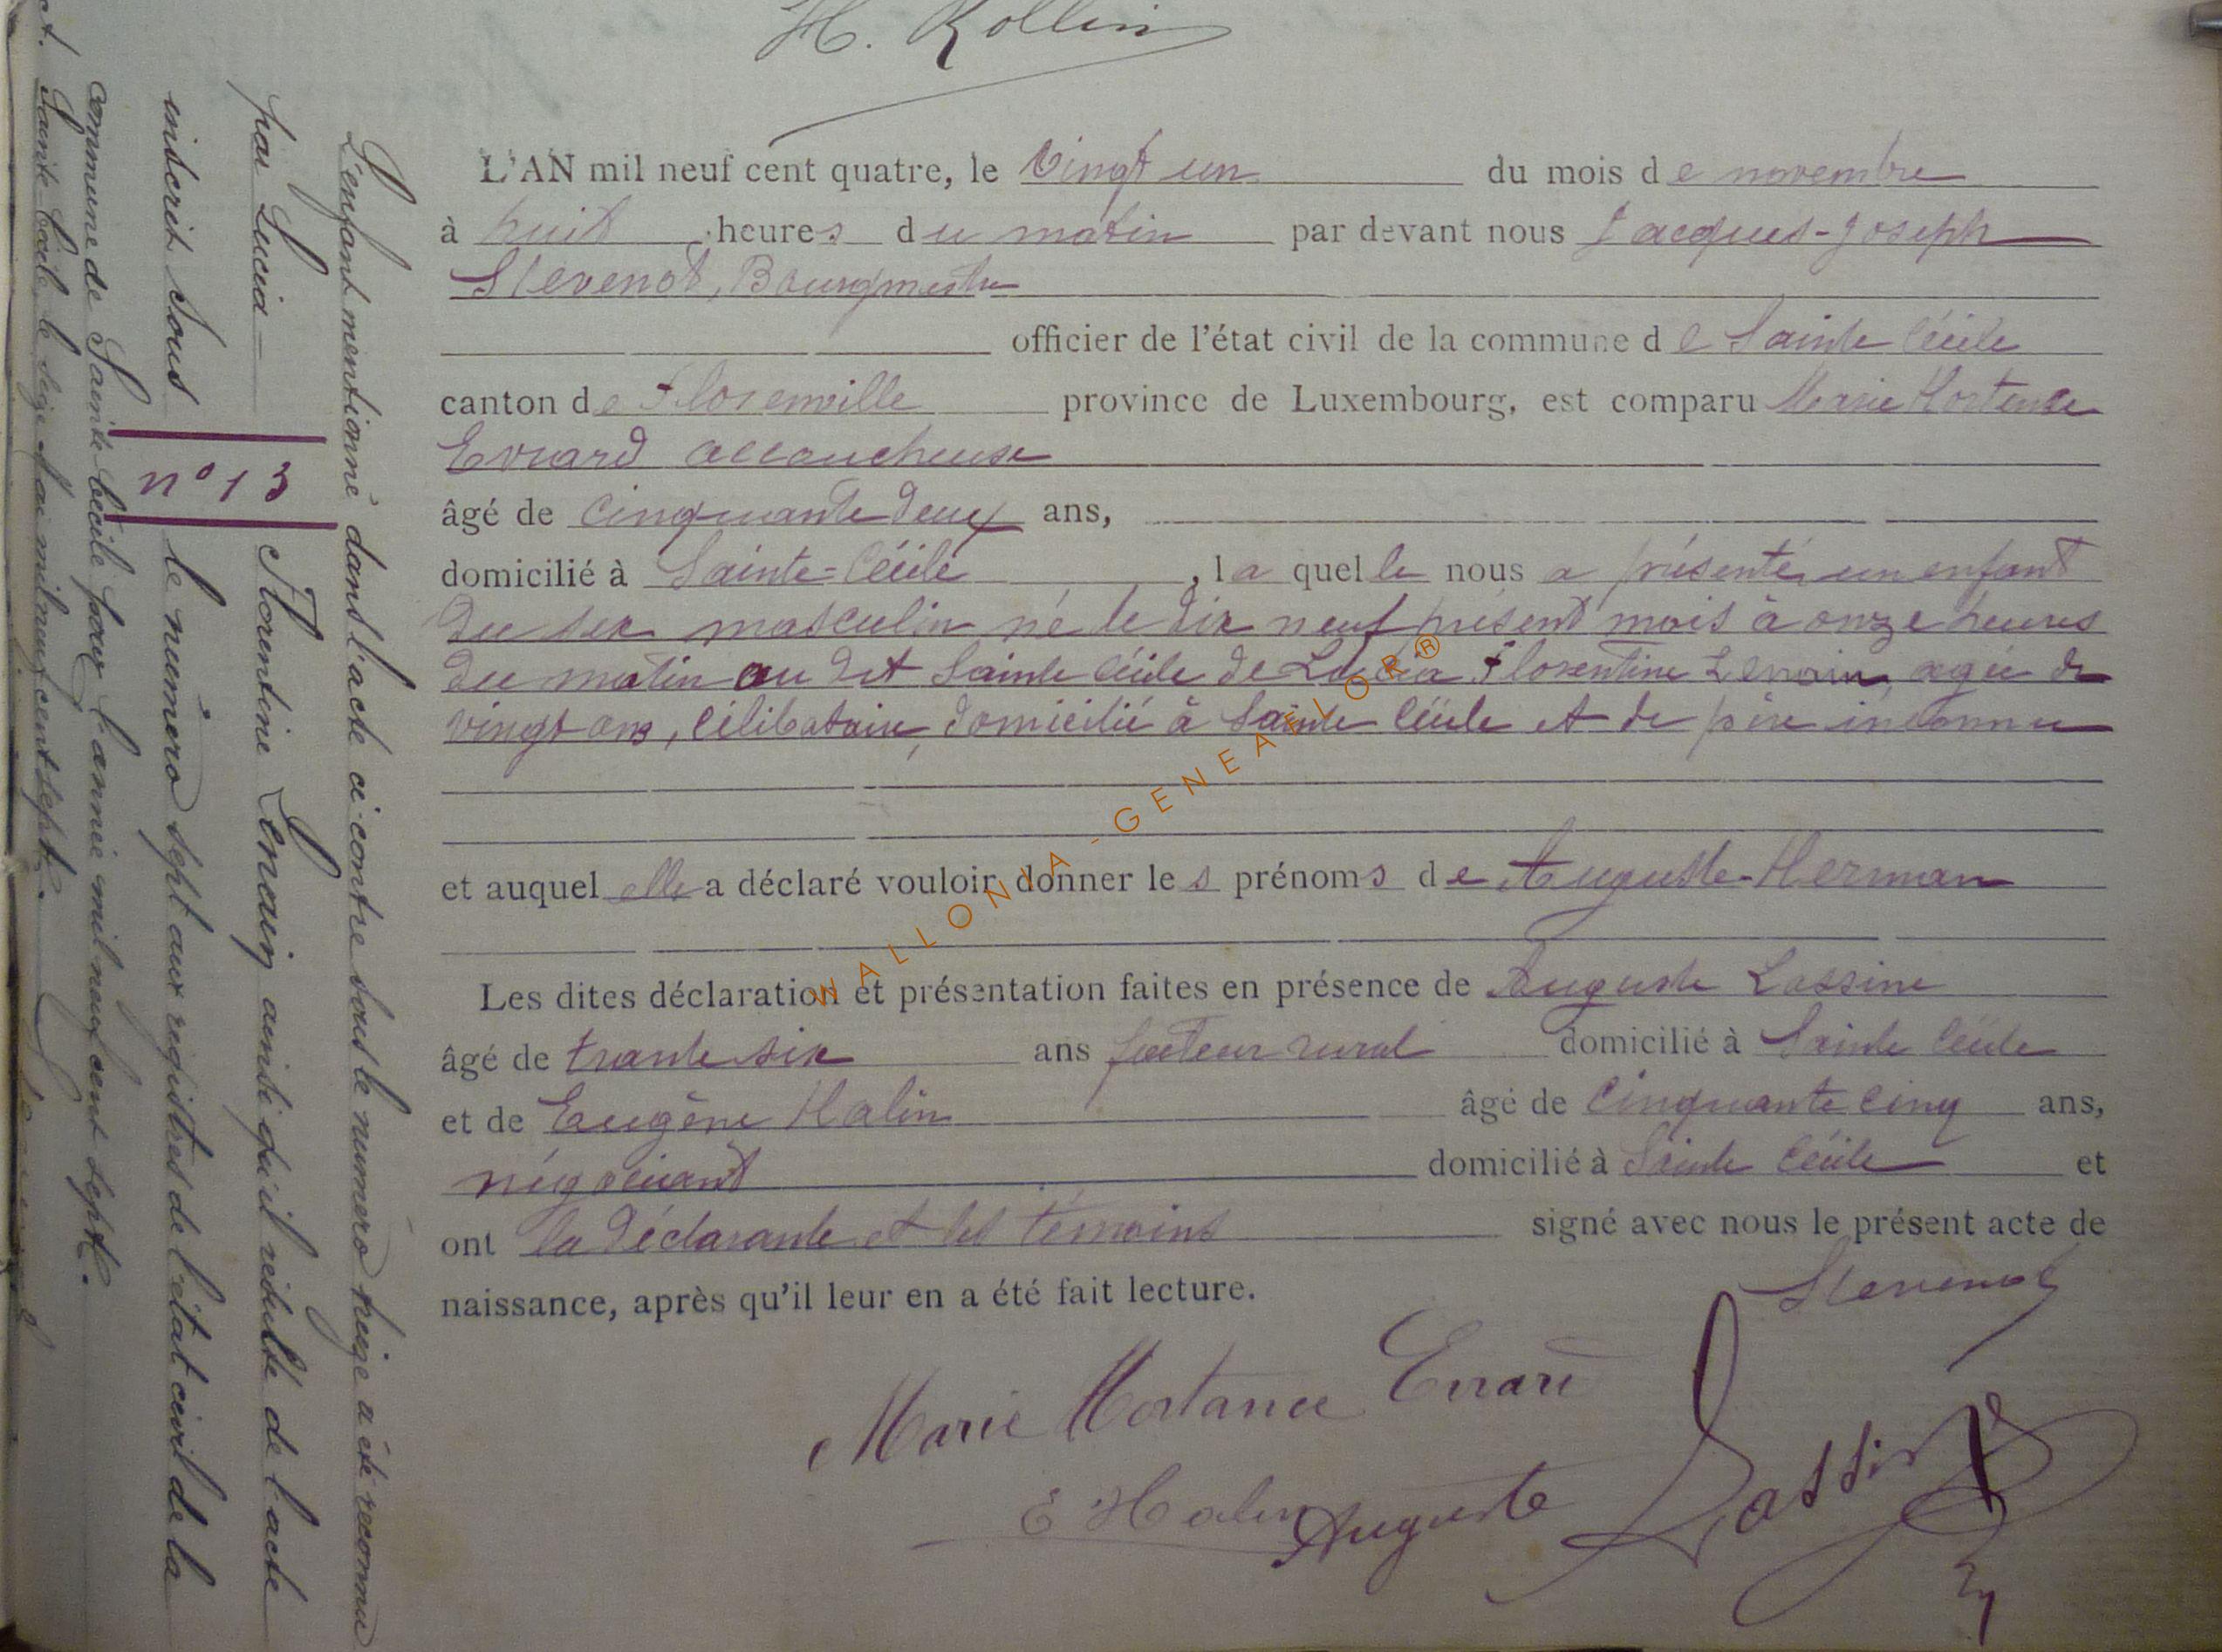 H. Rollin
L'AN mil neuf cent quatre, le vingt un du mois de novembre
à huit heures du matin par devant nous Jacques-Joseph
Stevenot, Bourgmestre
officier de l'état civil de la commune de Sainte Cécile
canton de Florenville province de Luxembourg, est comparu Marie Hortense
Evrard accoucheuse
âgé de cinquante deux ans,
domicilié à Sainte-Cécile, laquelle nous a présenté un enfant
du sexe masculin né le dix neuf présent mois à onze heures
du matin au dit Sainte Cécile de Lucia Florentine Lenoin, agée de
vingt ans, célibataire, domicilié à Sainte Cécile et de père inconnu
et auquel elle a déclaré vouloir donner les prénoms de Auguste-Herman
Les dites déclaration et présentation faites en présence de Auguste Lassine
âgé de trante six ans facteur rural domicilié à Sainte Cécile
et de Eugène Halin âgé de cinquante cinq ans,
négociant domicilié à Sainte Cécile et
ont la déclarante et les témoins signé avec nous le présent acte de
naissance, après qu'il leur en a été fait lecture.
Stevenot
Marie Hortance Evrard
E Halin Auguste Lassine
n° 13
L'enfant mentionné dans l'acte ci-contre sous le numéro treize a été reconnu
par Lucia Florentine Lenoin ainsi qu'il résulte de l'acte
inscrit sous le numéro sept aux registres de l'état civil de la
commune de Sainte Cécile pour l'année mil neuf cent sept.
Sainte Cécile, le seize Mai mil neuf cent sept.
WALLONIA-GENEAFLOR®